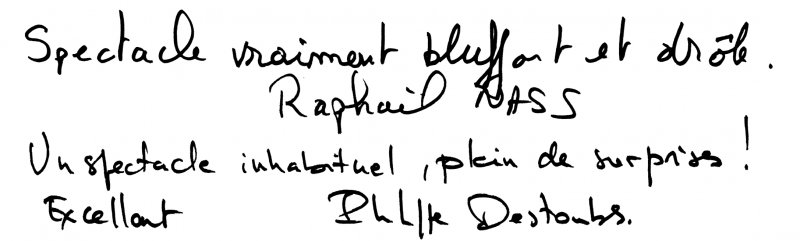 Spectacle vraiment bluffant et drôle.
Raphaël NASS
Un spectacle inhabituel, plein de surprises !
Excellent Philippe Destombs.